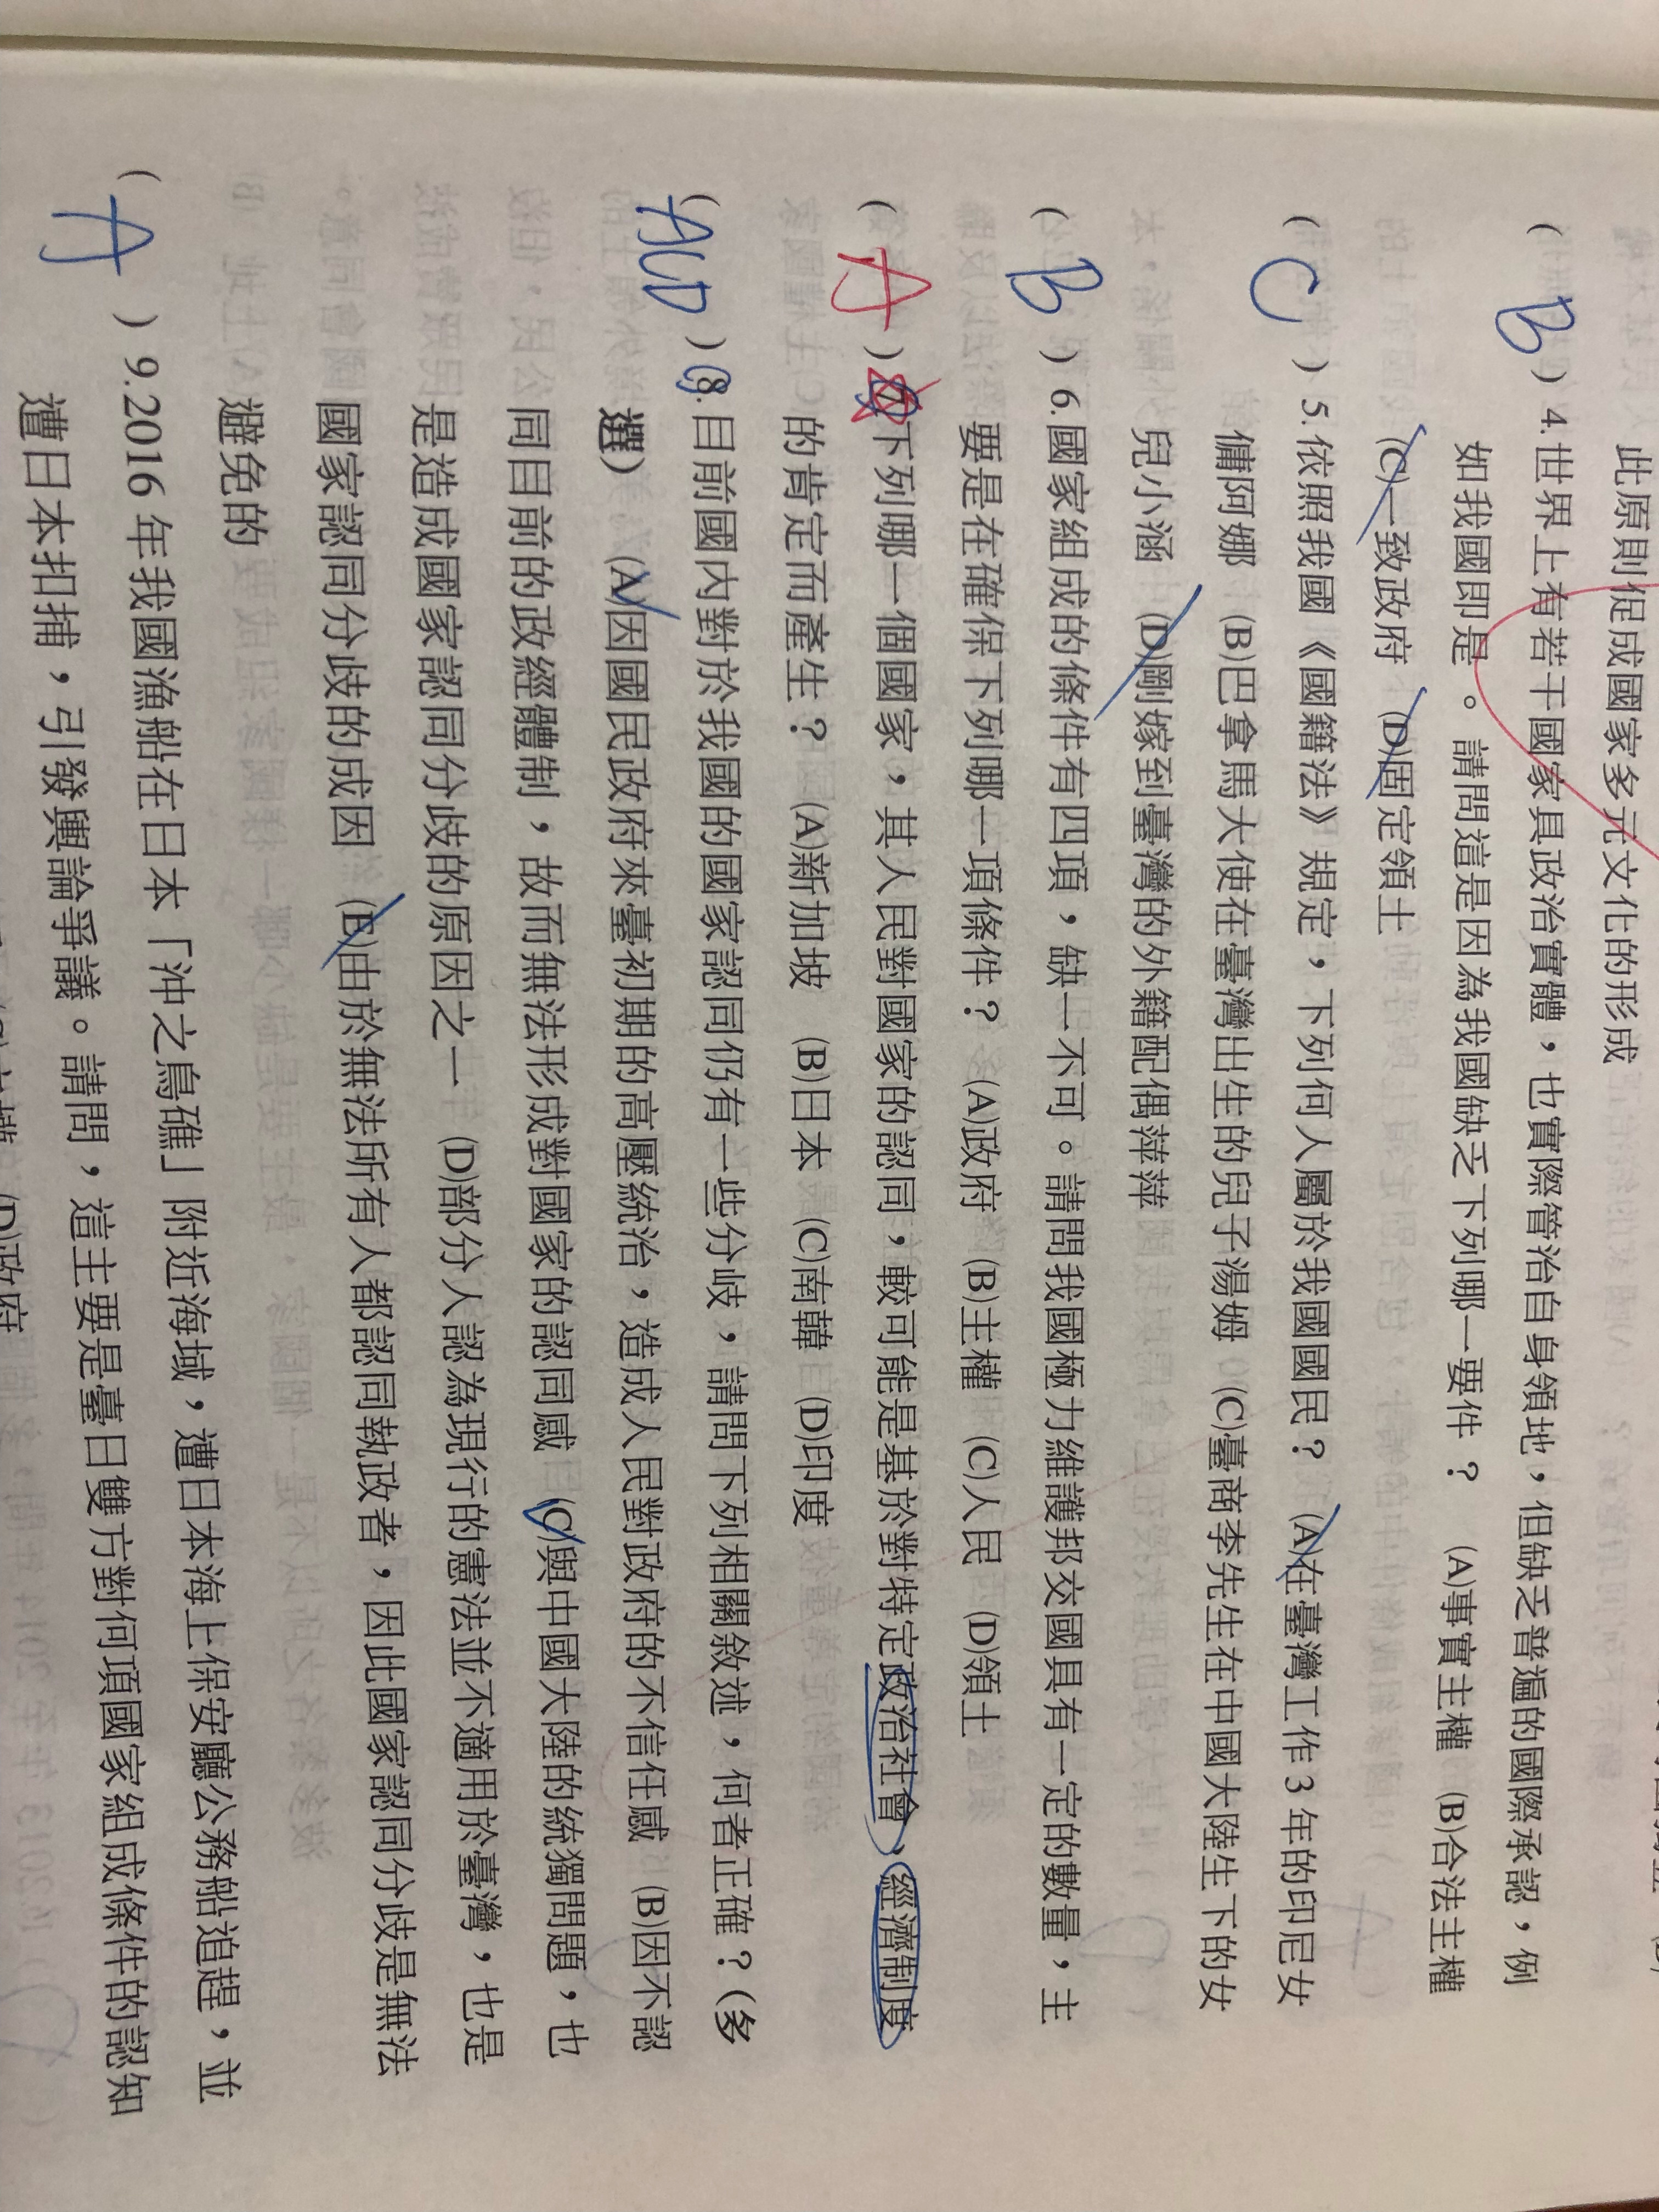 此原則促成國家多元文化的形成
( B ) 4.世界上有若干國家具政治實體，也實際管治自身領地，但缺乏普遍的國際承認，例
如我國即是。請問這是因為我國缺乏下列哪一要件？ (A)事實主權 (B)合法主權
(C)一致政府 (D)固定領土
( C ) 5.依照我國《國籍法》規定，下列何人屬於我國國民？ (A)在臺灣工作3年的印尼女
傭阿娜 (B)巴拿馬大使在臺灣出生的兒子湯姆 (C)臺商李先生在中國大陸生下的女
兒小涵 (D)剛嫁到臺灣的外籍配偶萍萍
( B ) 6.國家組成的條件有四項，缺一不可。請問我國極力維護邦交國具有一定的數量，主
要是在確保下列哪一項條件？ (A)政府 (B)主權 (C)人民 (D)領土
( A ) 7.下列哪一個國家，其人民對國家的認同，較可能是基於對特定政治社會、經濟制度
的肯定而產生？ (A)新加坡 (B)日本 (C)南韓 (D)印度
( ACD ) 8.目前國內對於我國的國家認同仍有一些分歧，請問下列相關敘述，何者正確？（多
選） (A)因國民政府來臺初期的高壓統治，造成人民對政府的不信任感 (B)因不認
同目前的政經體制，故而無法形成對國家的認同感 (C)與中國大陸的統獨問題，也
是造成國家認同分歧的原因之一 (D)部分人認為現行的憲法並不適用於臺灣，也是
國家認同分歧的成因 (E)由於無法所有人都認同執政者，因此國家認同分歧是無法
避免的
( A ) 9.2016年我國漁船在日本「沖之鳥礁」附近海域，遭日本海上保安廳公務船追趕，並
遭日本扣捕，引發輿論爭議。請問，這主要是臺日雙方對何項國家組成條件的認知
(D)政府